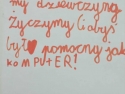 my dziewczyny
Życzymy Ci abyś
był pomocny jak
kOMPUTER!